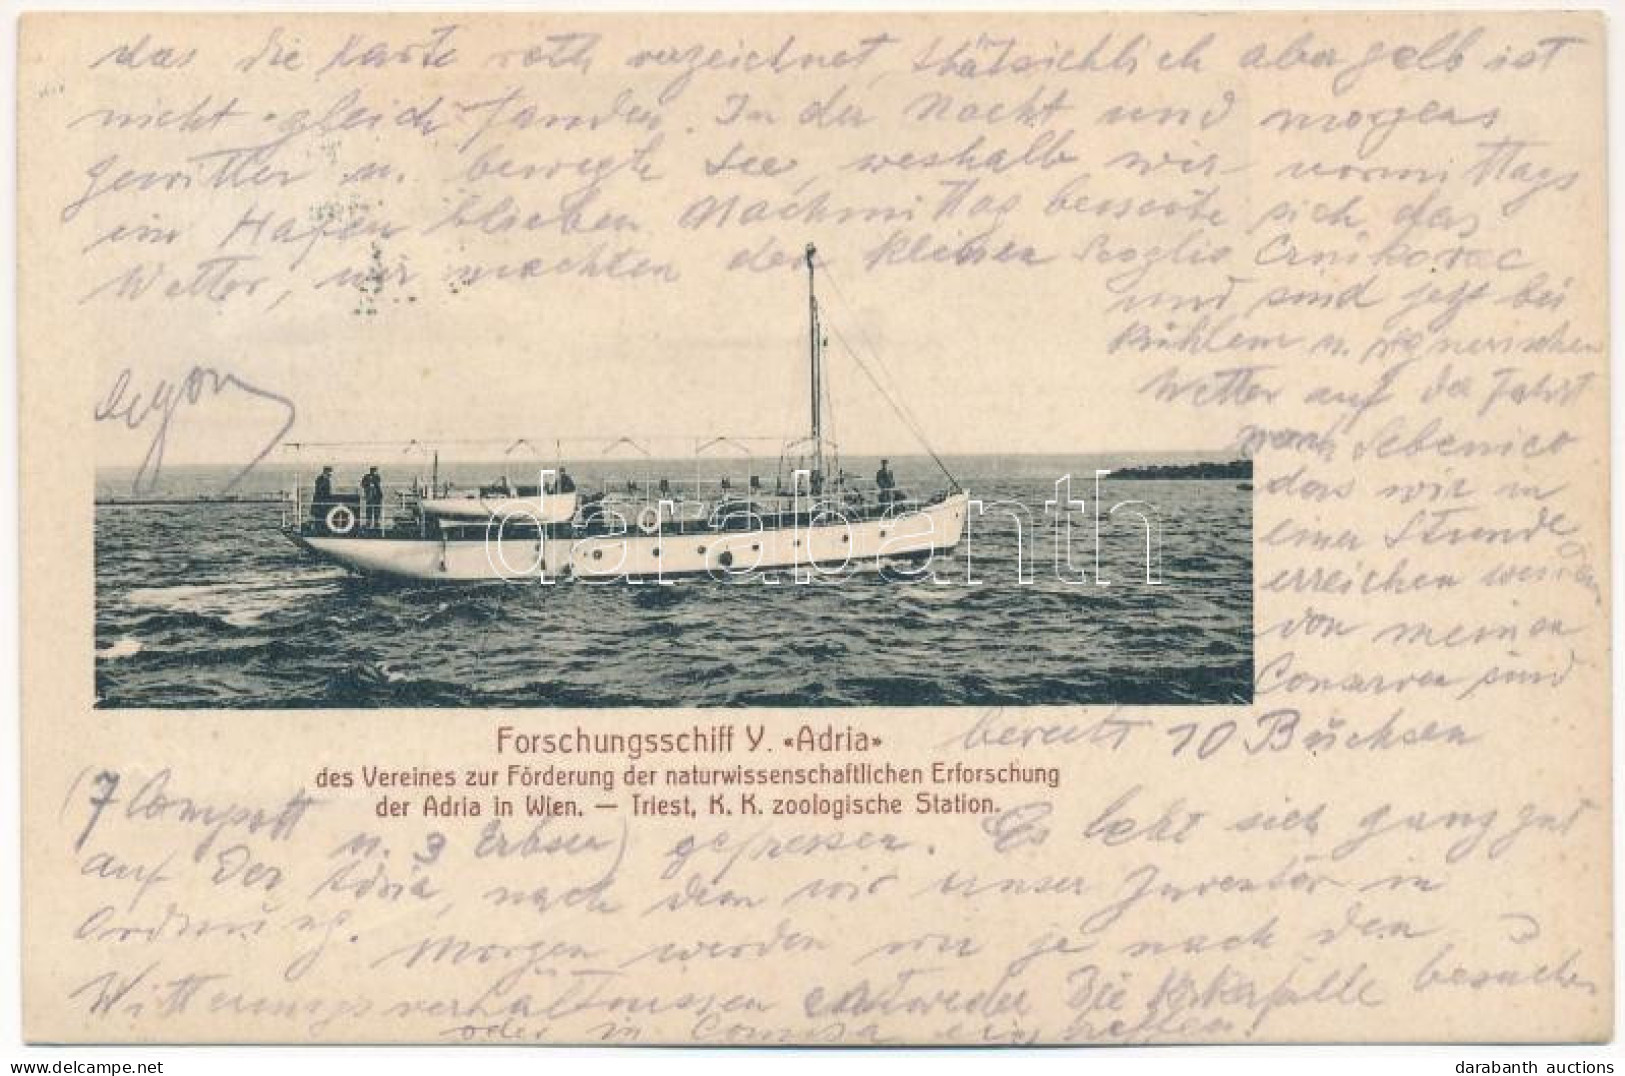 das die Karte roth verzeichnet, thatsichlich aber gelb ist
nicht gleich fanden. In der Nacht und morgens
gewitter u. bewegte See, weshalb wir vormittags
im Hafen blieben Nachmittag besserte sich das
Wetter, wir machten den kleinen Scoglio Crnikovac
und sind jetzt bei
kühlem u. regnerischen
Wetter auf der Fahrt
nach Sebenico
das wir in
einer Stunde
erreichen werden
von meinen
Conserven sind
bereits 10 Büchsen
Forschungsschiff Y. «Adria»
des Vereines zur Förderung der naturwissenschaftlichen Erforschung
der Adria in Wien. — Triest, K. K. zoologische Station.
(7 Compott u. 3 Erbsen) gefressen. Es lebt sich ganz gut
auf der Adria, nach dem wir unser Inventar in
Ordnung. Morgen werden wir je nach den
Witterungsverhältnissen entweder die Kerkafälle besuchen
oder in Comisa eintreffen!
darabanth
darabanth auctions